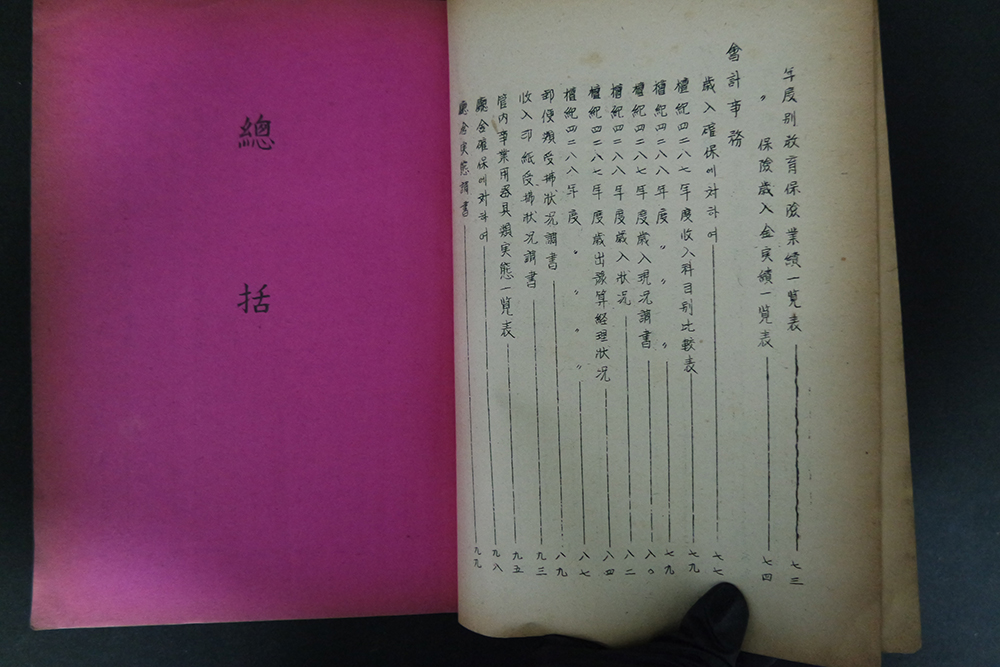 年度別敎育保険業績一覧表 七三
〃 保險歲入金実績一覧表 七四
會計事務
歲入確保에対하여 七七
檀紀四二八七年度收入科目别比較表 七九
檀紀四二八八年度 〃 〃 〃 七九
檀紀四二八七年度歲入現況調書 八〇
檀紀四二八八年度歲入狀况 八二
檀紀四二八七年度歲出豫算経理狀况 八四
檀紀四二八八年度 〃 〃 〃 八七
郵便類受拂狀况調書 八九
收入印紙受拂狀况調書 九三
管内事業用器具類実態一覧表 九五
廳舍確保에対하여 九八
廳舍実態調書 九九
總括